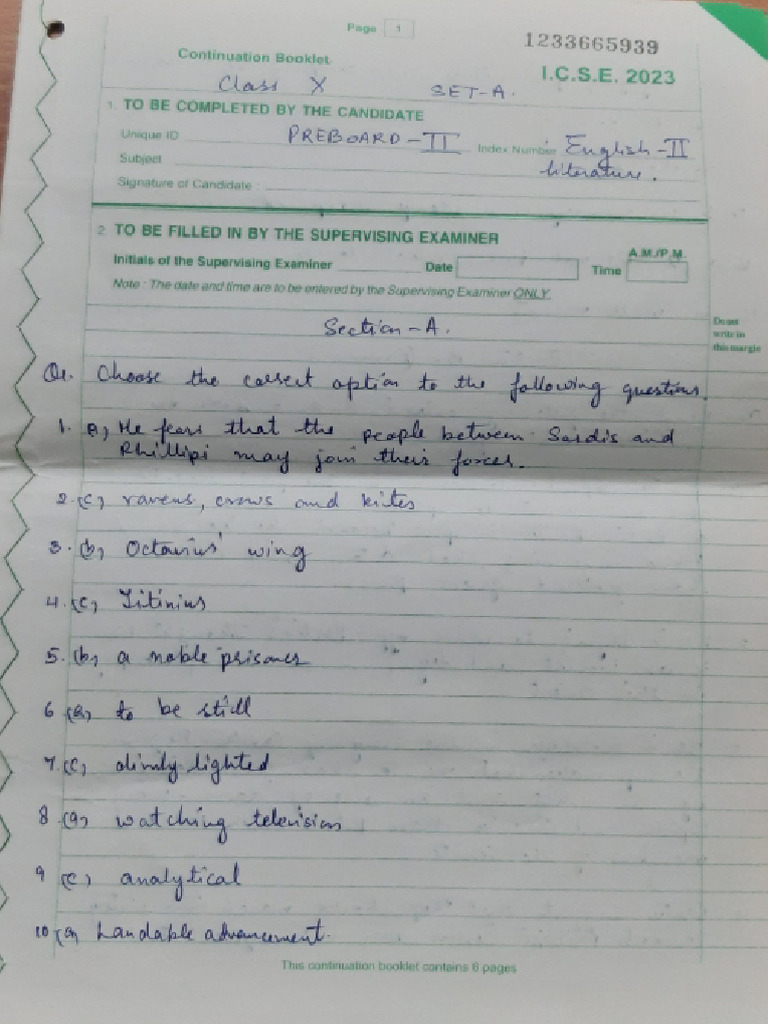 Page 1
1233665939
Continuation Booklet
I.C.S.E. 2023
Class X SET-A.
1. TO BE COMPLETED BY THE CANDIDATE
Unique ID PREBOARD-II Index Number English-II
Subject literature.
Signature of Candidate :
2. TO BE FILLED IN BY THE SUPERVISING EXAMINER
A.M./P.M.
Initials of the Supervising Examiner Date Time
Note : The date and time are to be entered by the Supervising Examiner ONLY.
Do not
write in
this margin
Section-A.
Q1. Choose the correct option to the following questions.
1. a) He fears that the people between Sardis and
Phillipi may join their forces.
2. (c) ravens, crows and kites
3. (b) Octavius' wing
4. (c) Titinius
5. (b) a noble prisoner
6 (a) to be still
7. (c) dimly lighted
8 (a) watching television
9 (c) analytical
10 (a) Laudable advancement.
This continuation booklet contains 6 pages